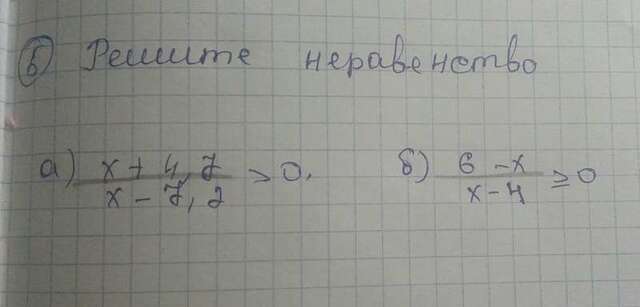 5) Решите неравенство
а) x + 4,7 / x - 7,2 > 0. б) 6 - x / x - 4 ≥ 0